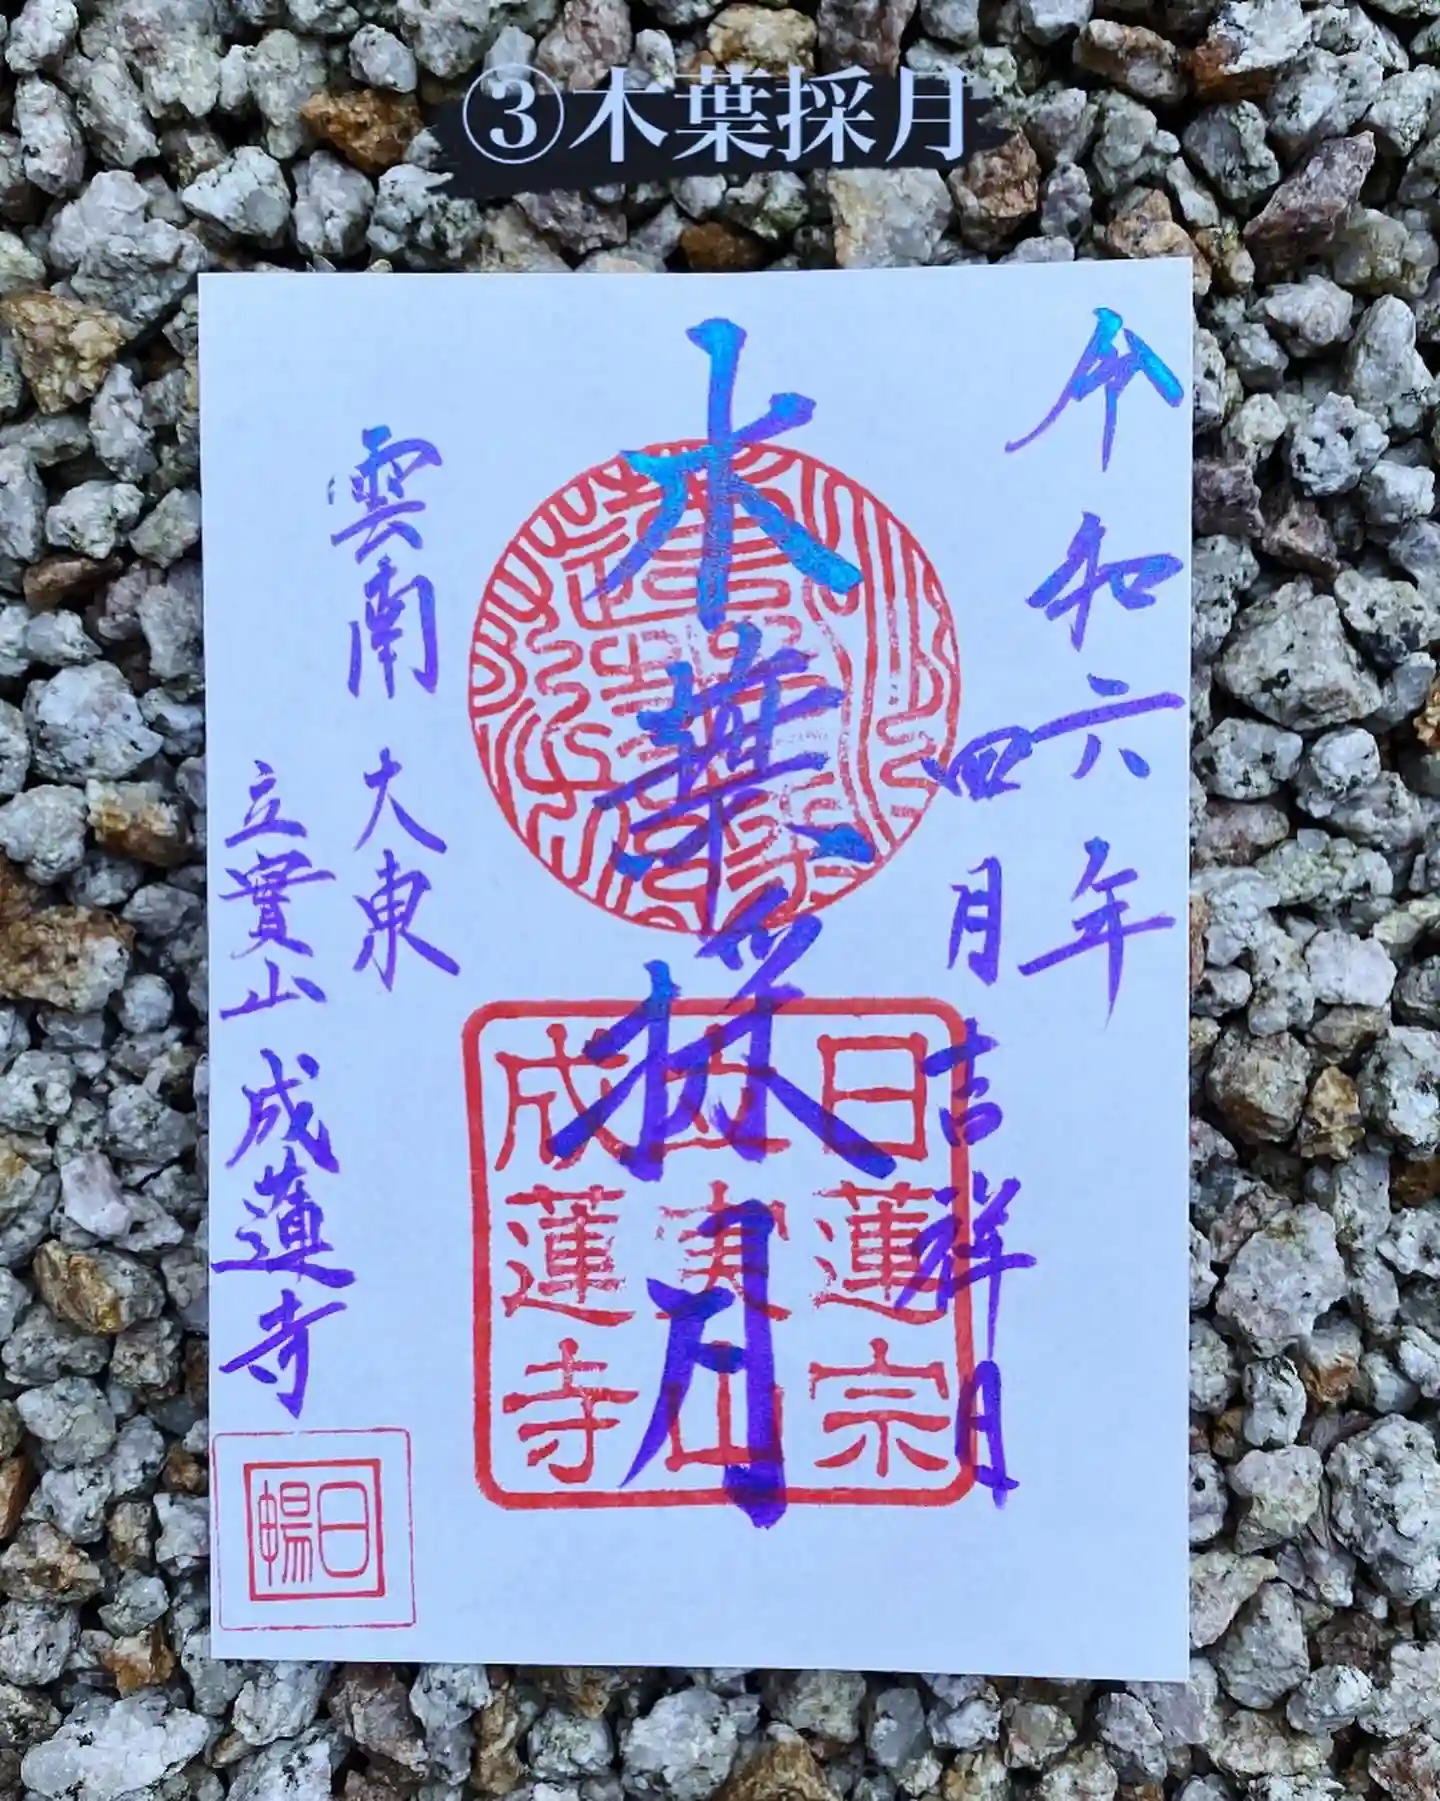 ③木葉採月
令和六年
四月吉祥日
木葉採月
雲南
大東
立實山 成蓮寺
日蓮宗
立実山
成蓮寺
日暢